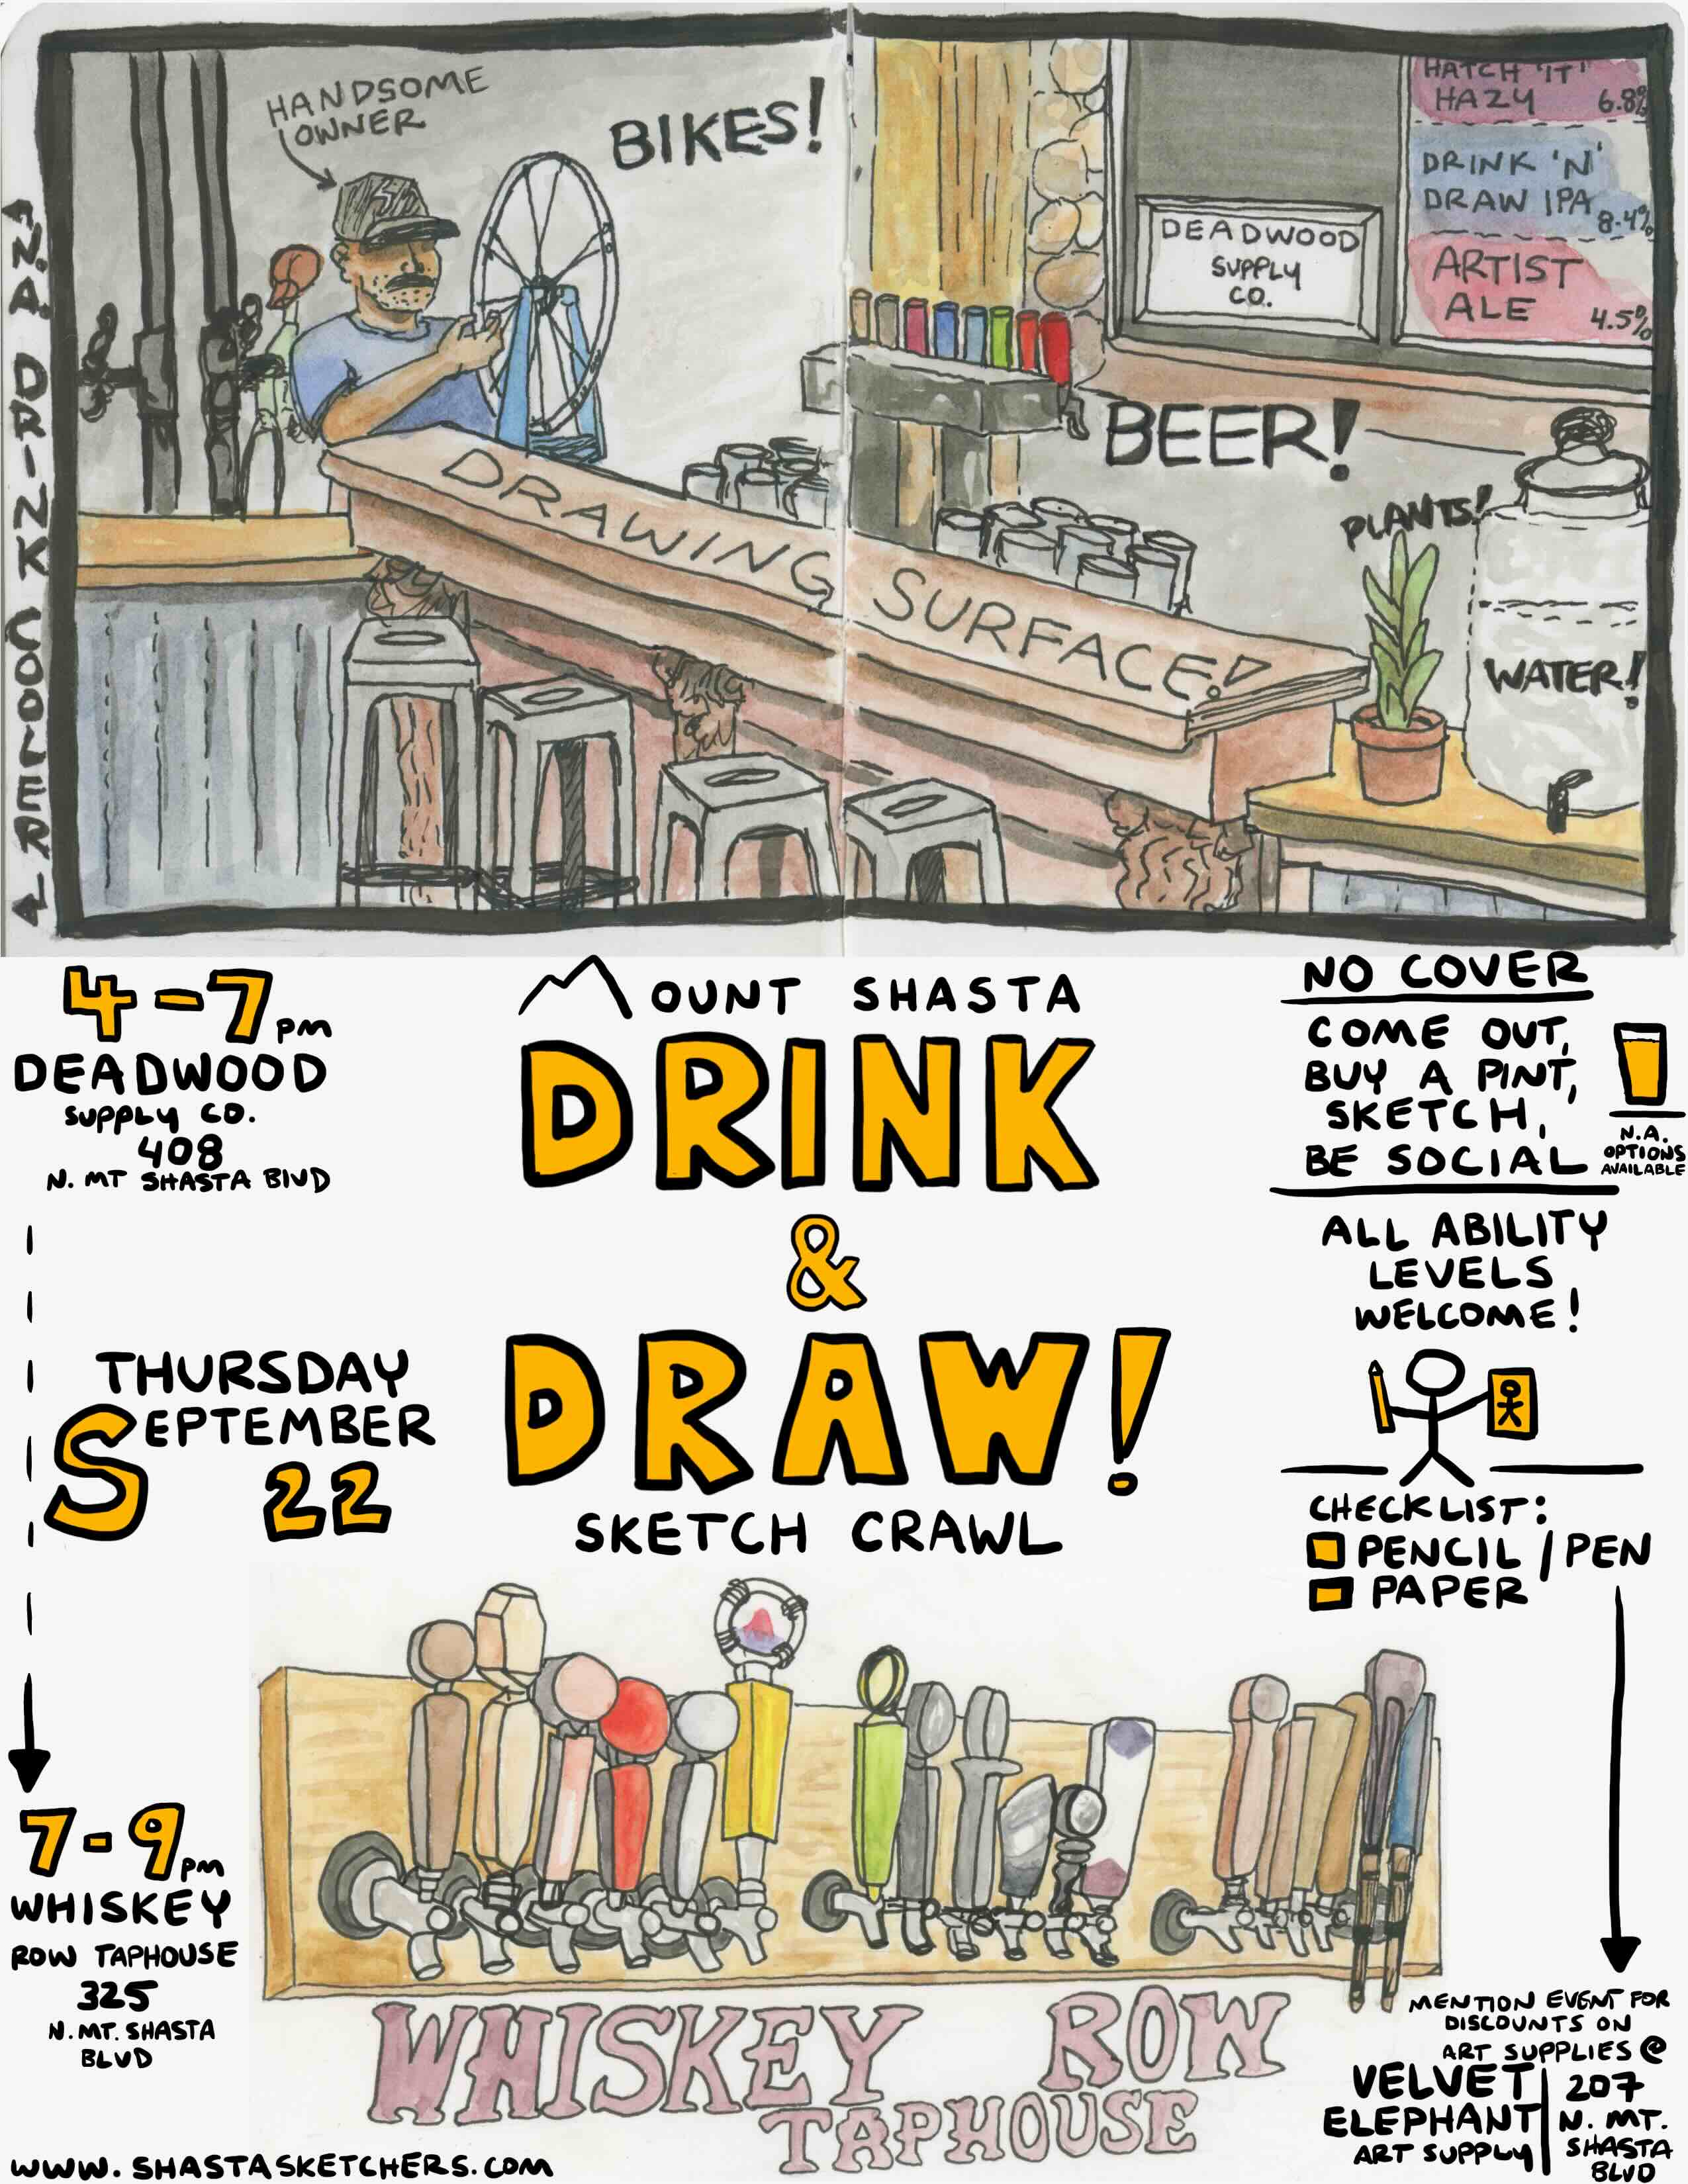 HANDSOME
OWNER
BIKES!
HATCH 'IT'
HAZY 6.8%
DRINK 'N'
DRAW IPA 8.4%
ARTIST
ALE 4.5%
DEADWOOD
SUPPLY
CO.
N.A. DRINK COOLER
BEER!
PLANTS!
WATER!
DRAWING SURFACE!
4-7 PM
DEADWOOD
SUPPLY CO.
408
N. MT SHASTA BLVD
MOUNT SHASTA
DRINK
&
DRAW!
SKETCH CRAWL
NO COVER
COME OUT,
BUY A PINT,
SKETCH,
BE SOCIAL
N.A.
OPTIONS
AVAILABLE
ALL ABILITY
LEVELS
WELCOME!
THURSDAY
SEPTEMBER
22
CHECKLIST:
PENCIL / PEN
PAPER
7-9 PM
WHISKEY
ROW TAPHOUSE
325
N. MT. SHASTA
BLVD
WHISKEY ROW
TAPHOUSE
MENTION EVENT FOR
DISCOUNTS ON
ART SUPPLIES @
VELVET
ELEPHANT
ART SUPPLY
207
N. MT.
SHASTA
BLVD
WWW.SHASTASKETCHERS.COM